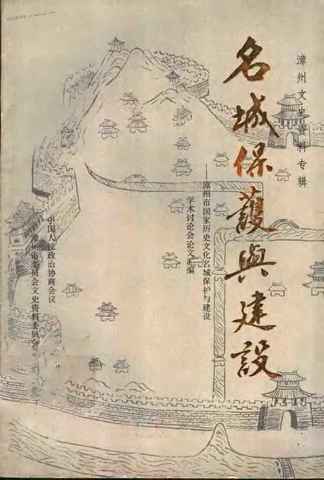 漳州文史资料专辑
名城保護與建設
——漳州市国家历史文化名城保护与建设
学术讨论会论文汇编
中国人民政治协商会议
委员会文史资料委员会